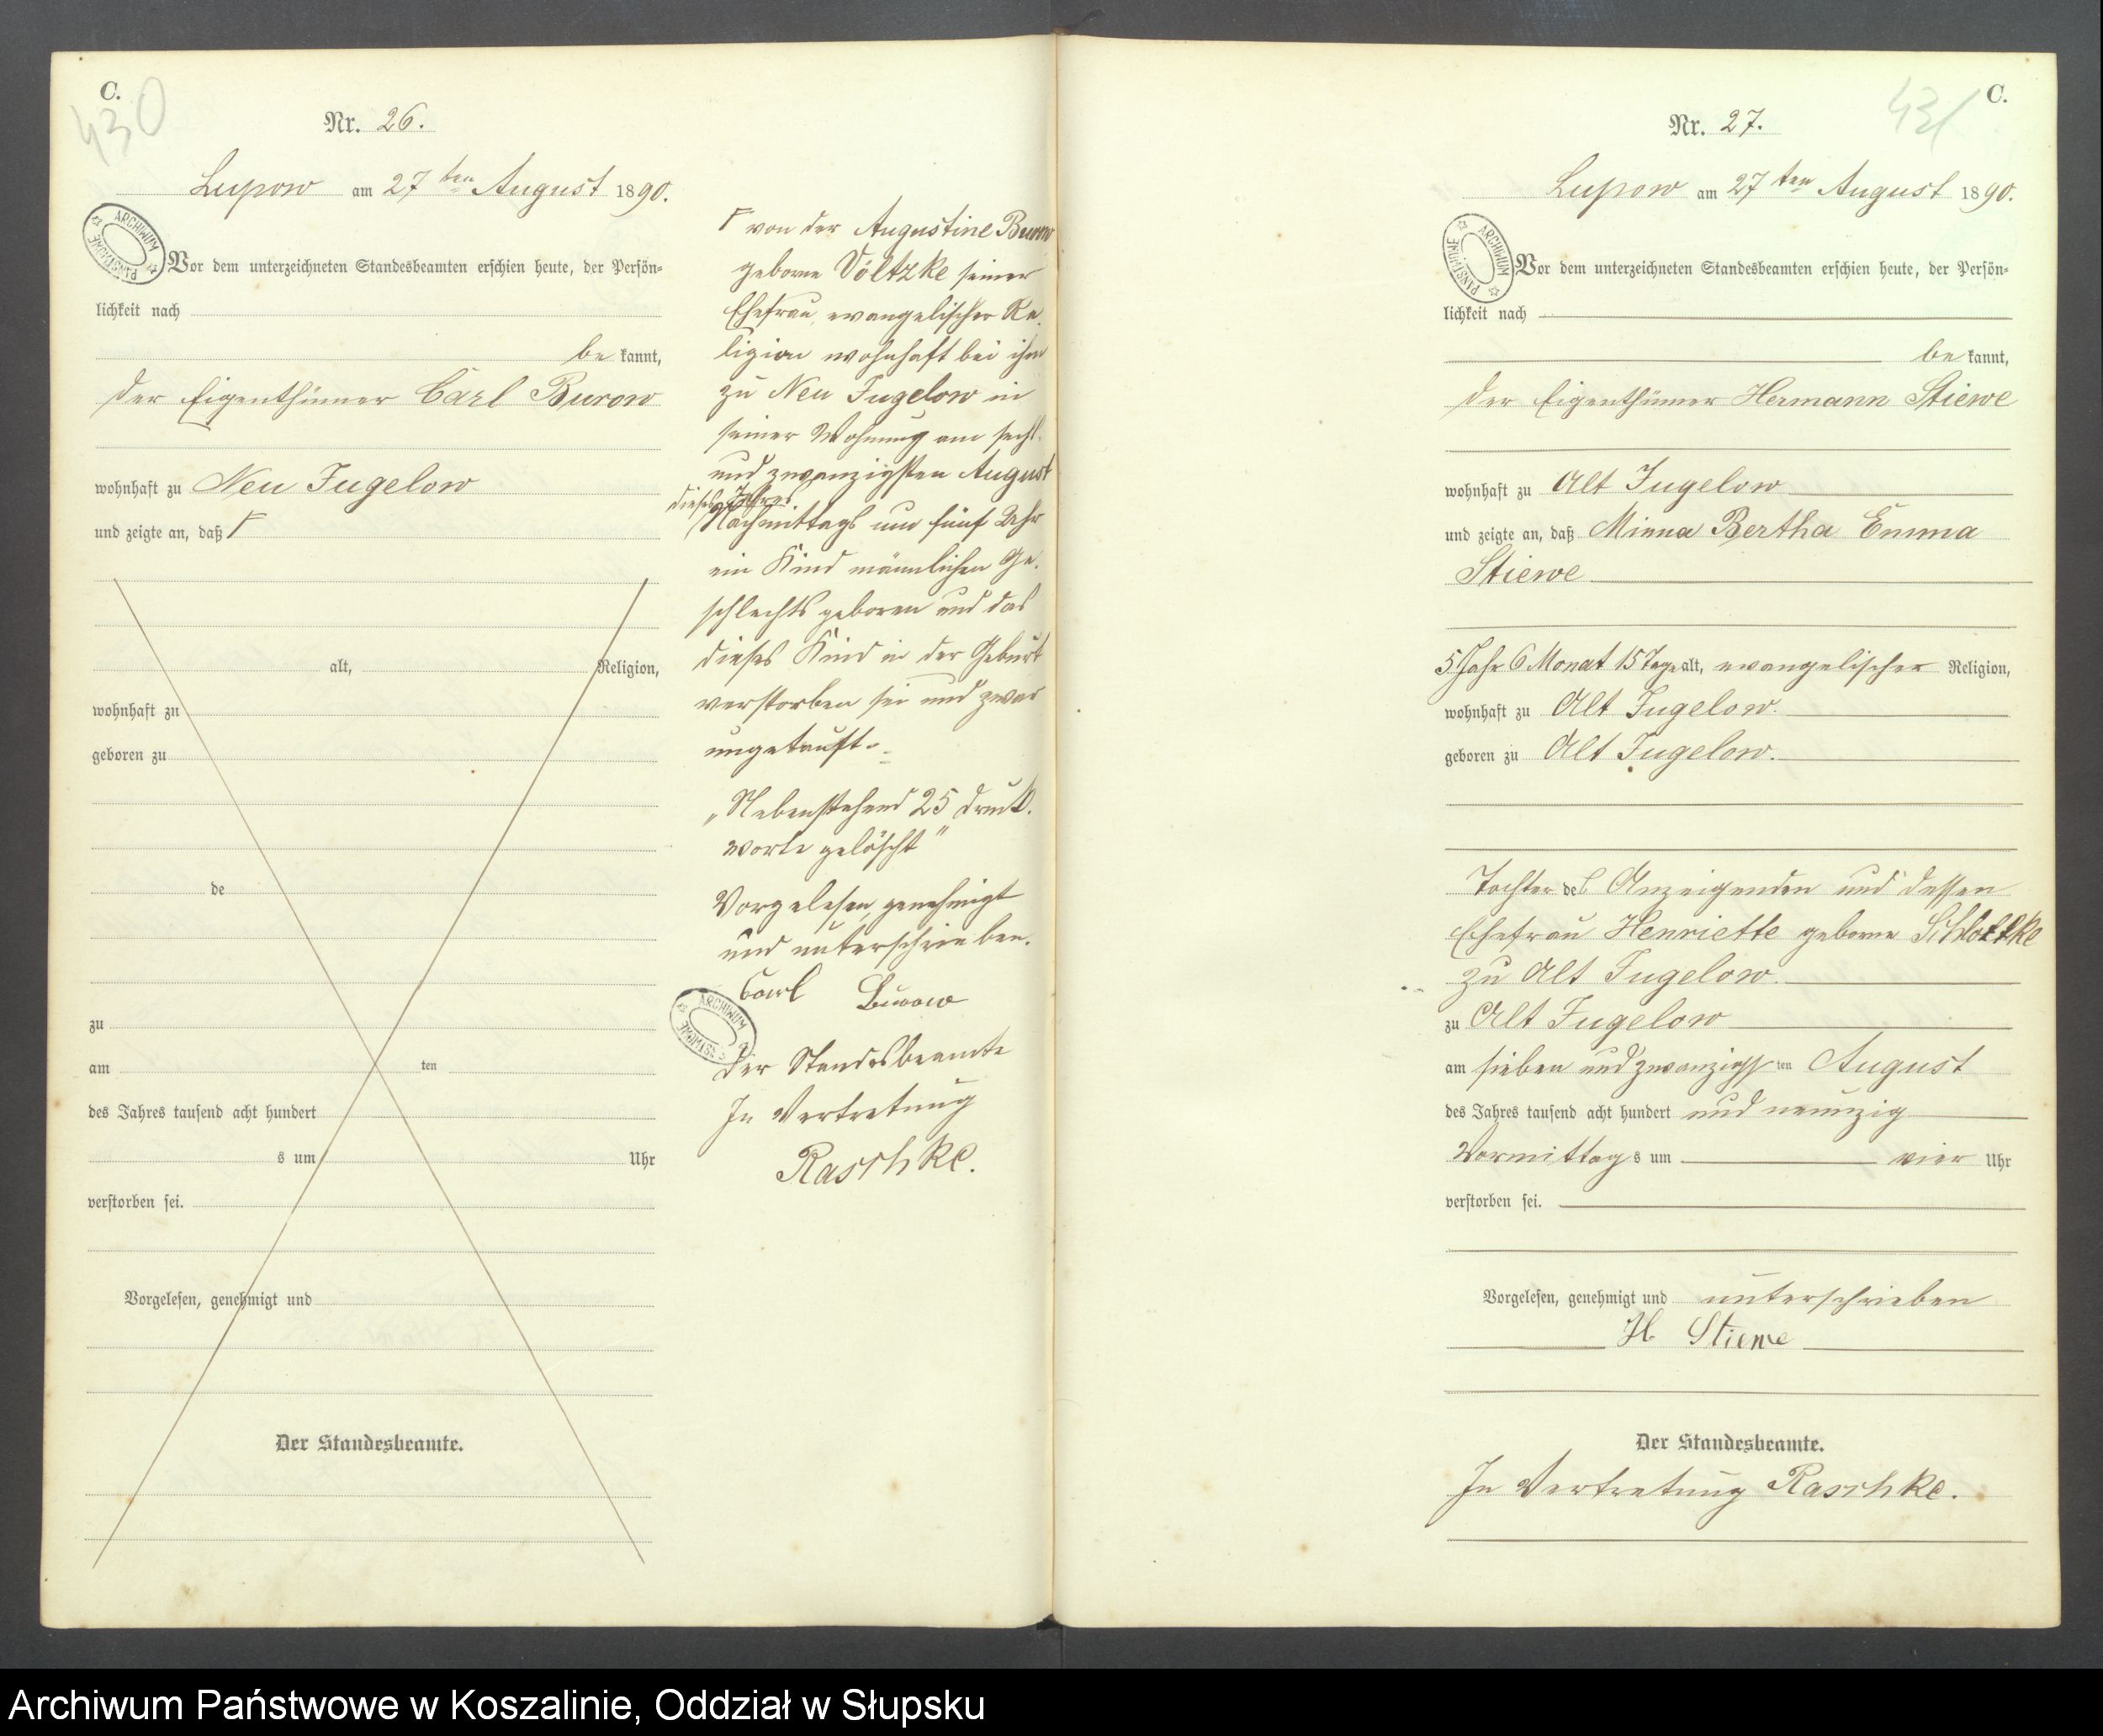 C.
430
Nr. 26.
Lupow am 27ten August 1890.
Vor dem unterzeichneten Standesbeamten erschien heute, der Persön=
lichkeit nach
be kannt,
der Eigenthümer Carl Burow
wohnhaft zu Neu Jugelow
und zeigte an, daß Γ
alt, Religion,
wohnhaft zu
geboren zu
de
zu
am ten
des Jahres tausend acht hundert
s um Uhr
verstorben sei.
Vorgelesen, genehmigt und
Der Standesbeamte.
Γ von der Augustine Burow
geborne Völtzke seiner
Ehefrau, evangelischer Re-
ligion wohnhaft bei ihm
zu Neu Jugelow in
seiner Wohnung am sechs-
und zwanzigsten August
dieses Jahres
Nachmittags um fünf Uhr
ein Kind männlichen Ge-
schlechts geboren und das
dieses Kind in der Geburt
verstorben sei und zwar
ungetauft.
„Nebenstehend 25 Druck-
worte gelöscht"
Vorgelesen, genehmigt
und unterschrieben.
Carl Burow
Der Standesbeamte
In Vertretung
Raschke.
ARCHIWUM PAŃSTWOWE
ARCHIWUM PAŃSTWOWE
C.
431
Nr. 27.
Lupow am 27ten August 1890.
ARCHIWUM PAŃSTWOWE
Vor dem unterzeichneten Standesbeamten erschien heute, der Persön=
lichkeit nach
be kannt,
der Eigenthümer Hermann Stiewe
wohnhaft zu Alt Jugelow
und zeigte an, daß Minna Bertha Emma
Stiewe
5 Jahr 6 Monat 15 Tage alt, evangelischer Religion,
wohnhaft zu Alt Jugelow.
geboren zu Alt Jugelow.
Tochter des Anzeigenden und dessen
Ehefrau Henriette geborne Schlottke
zu Alt Jugelow.
zu Alt Jugelow
am sieben und zwanzigsten August
des Jahres tausend acht hundert und neunzig
Vormittags um vier Uhr
verstorben sei.
Vorgelesen, genehmigt und unterschrieben
H Stiewe
Der Standesbeamte.
In Vertretung Raschke.
Archiwum Państwowe w Koszalinie, Oddział w Słupsku